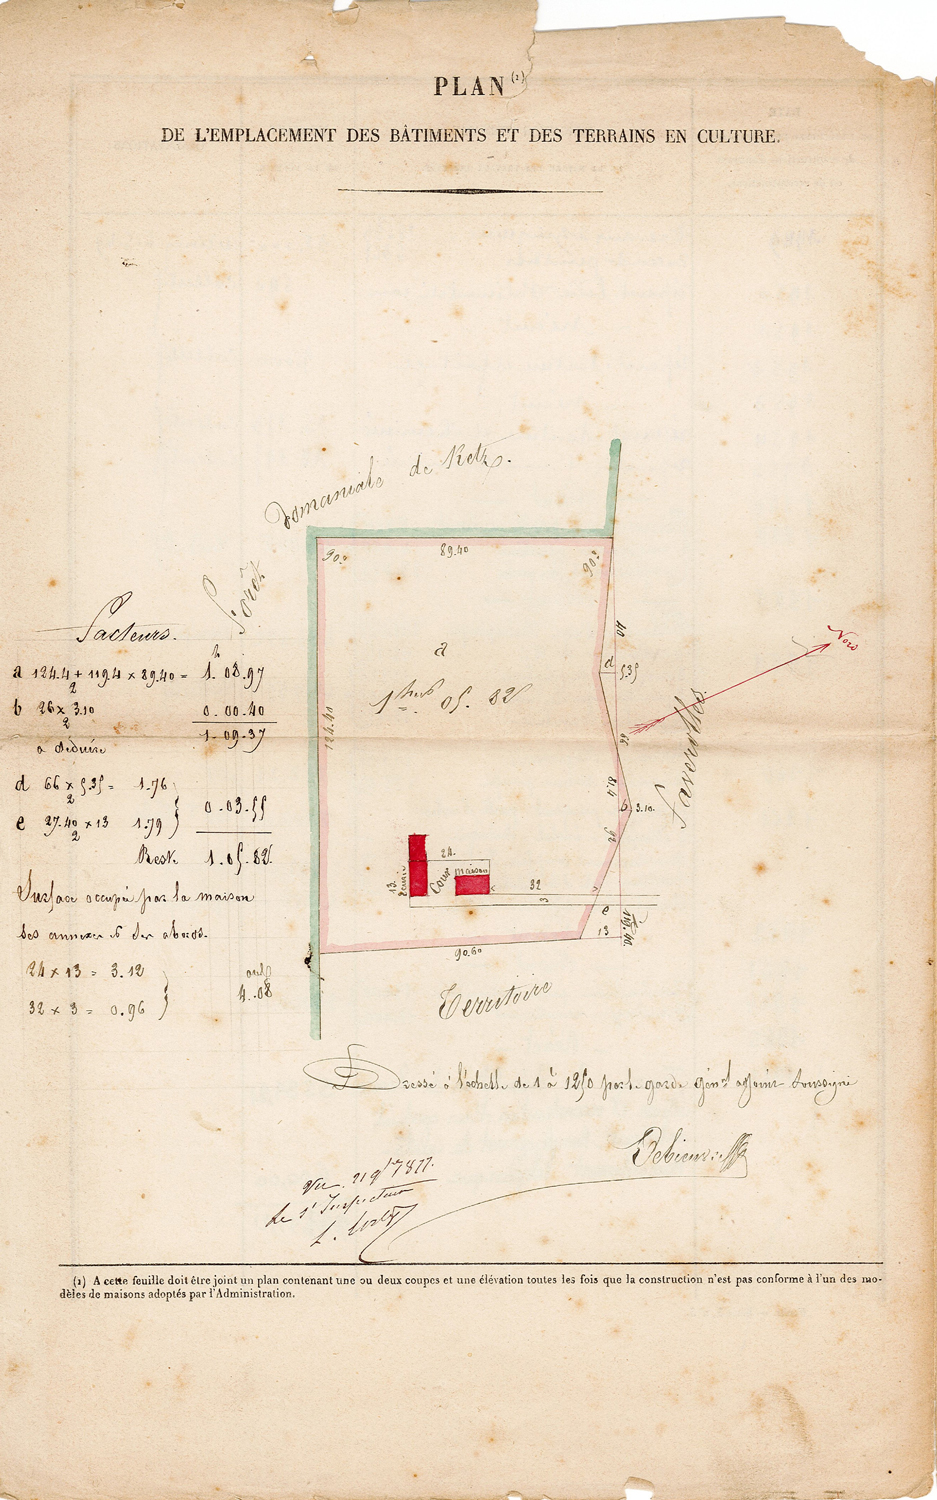 PLAN (1)
DE L'EMPLACEMENT DES BÂTIMENTS ET DES TERRAINS EN CULTURE.
Forêt domaniale de Retz.
90.°
89.40
90.°
40
d 5.35
a
1 hect. 05. 82
124.40
66
Nord
Faverolles
81.4
b 3.10.
26
24.
13.
Ecurie
Cour
maison
32
3
e
13
119.40.
90.60
Territoire
Facteurs.
h
a 124.4 + 119.4 × 89.40 = 1. 08.97
2
b 26 × 3.10 0.00.40
2
1.09.37
à déduire
d 66 × 5.35 = 1.76
2
e 27.40 × 13 1.79 } 0.03.55
2
Reste 1.05.82
Surface occupée par la maison
ses annexes et ses abords.
24 × 13 = 3.12
32 × 3 = 0.96 } 4.08
Dressé à l'échelle de 1 à 1250 par le garde génal adjoint soussigné
Vu 21 9bre 1877.
Le s' Inspecteur
(1) A cette feuille doit être joint un plan contenant une ou deux coupes et une élévation toutes les fois que la construction n'est pas conforme à l'un des mo-
dèles de maisons adoptés par l'Administration.